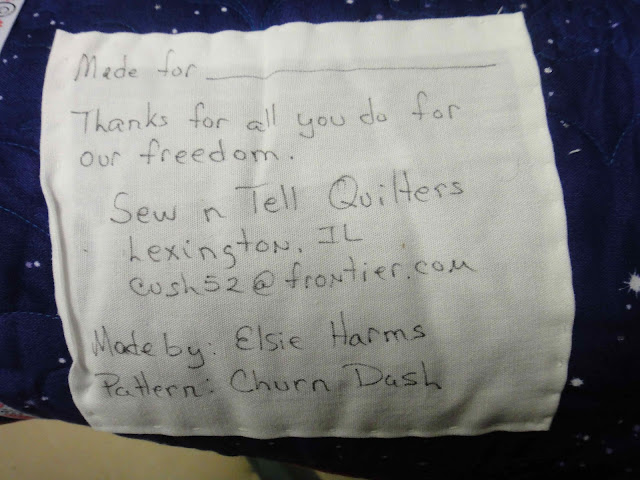 Made for
Thanks for all you do for
our freedom.
Sew n Tell Quilters
Lexington, IL
cush52@frontier.com
Made by: Elsie Harms
Pattern: Churn Dash